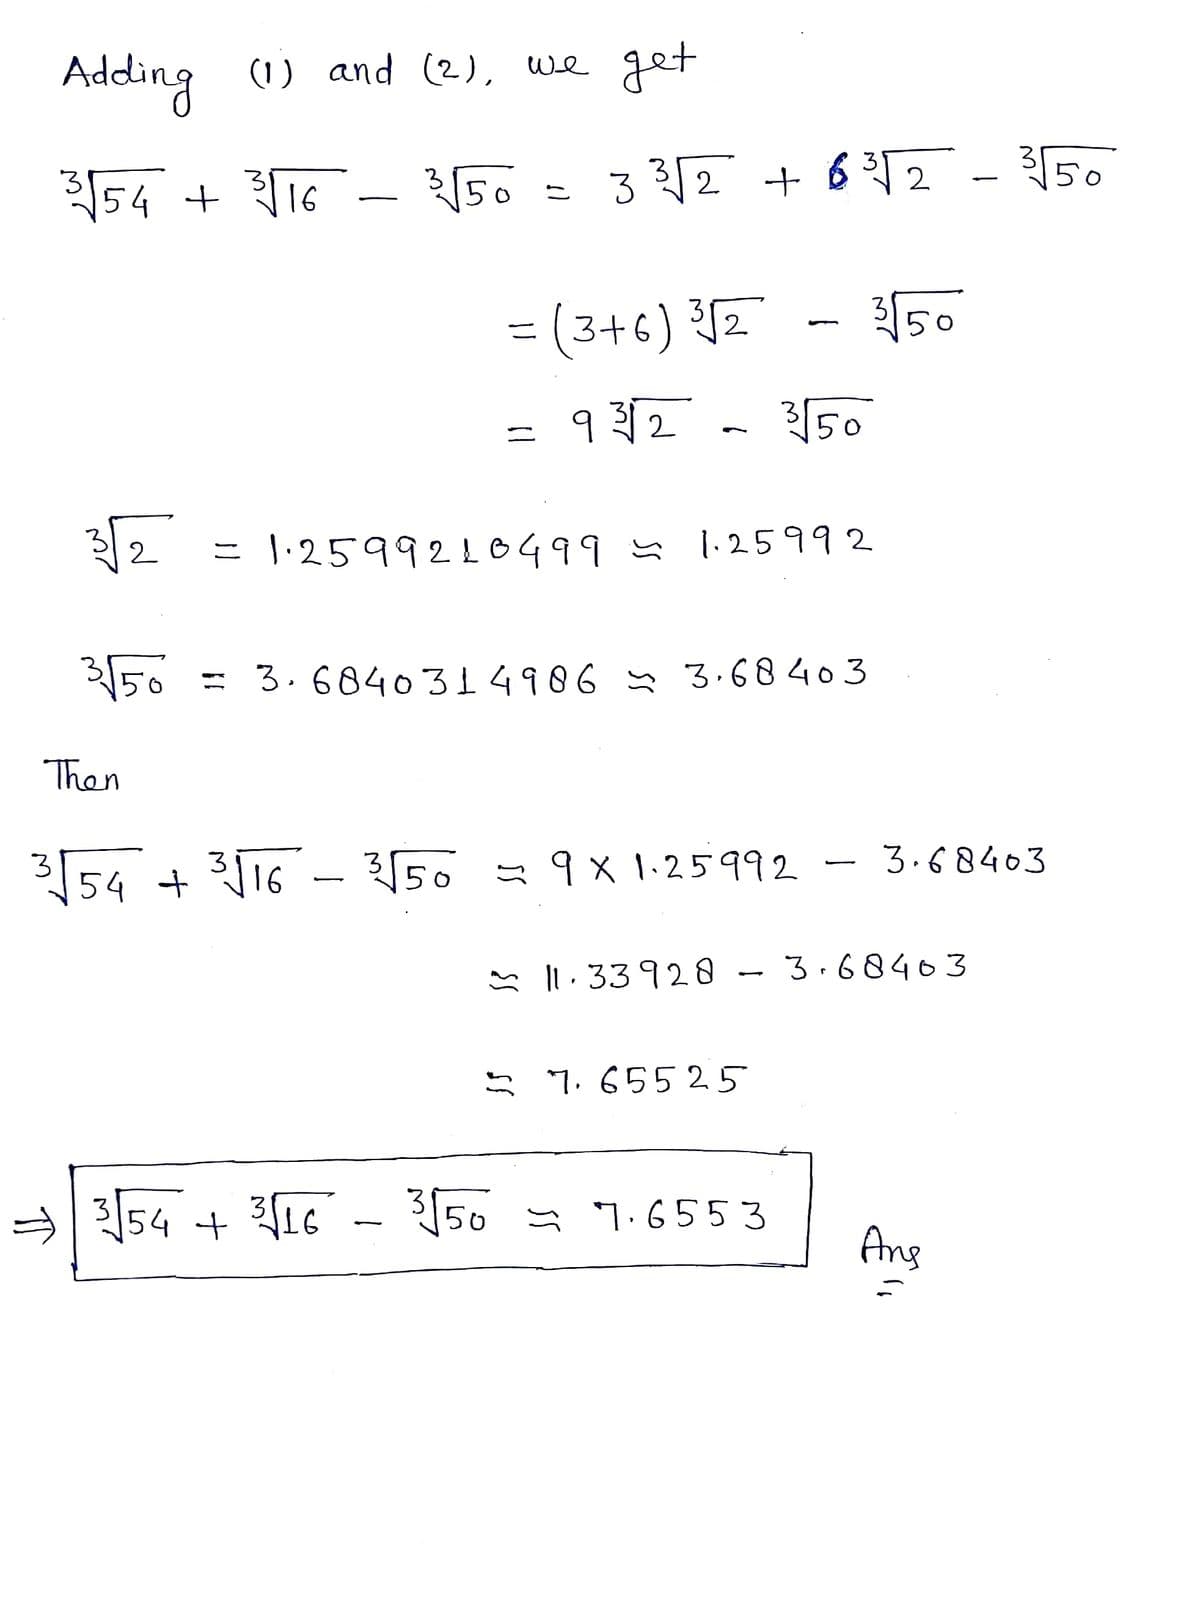 Adding (1) and (2), we get
∛54 + ∛16 − ∛50 = 3 ∛2 + 6 ∛2 − ∛50
= (3+6) ∛2 − ∛50
= 9 ∛2 − ∛50
∛2 = 1.2599210499 ≈ 1.25992
∛50 = 3.6840314986 ≈ 3.68403
Then
∛54 + ∛16 − ∛50 ≈ 9 × 1.25992 − 3.68403
≈ 11.33928 − 3.68403
≈ 7.65525
⇒ ∛54 + ∛16 − ∛50 ≈ 7.6553
Ans